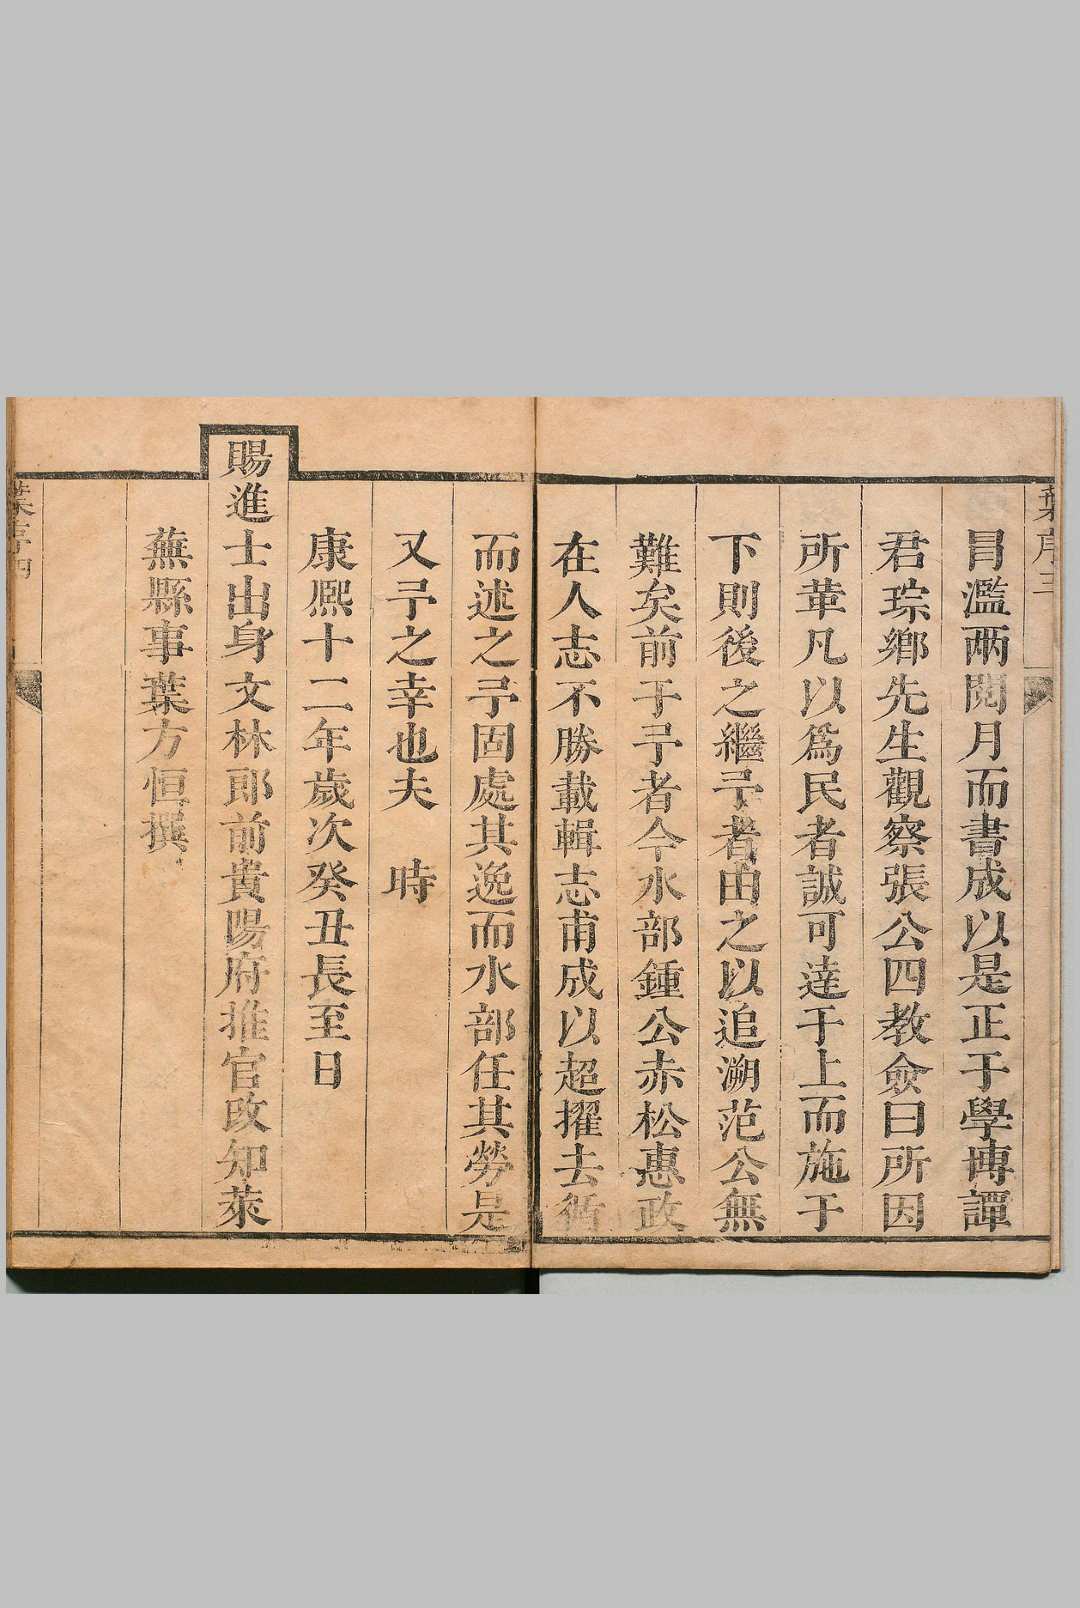 葉序三
冒濫兩閱月而書成以是正于學博譚
君琮鄉先生觀察張公四教僉曰所因
所革凡以爲民者誠可達于上而施于
下則後之繼予者由之以追溯范公無
難矣前于予者今水部鍾公赤松惠政
在人志不勝載輯志甫成以超擢去循
而述之予固處其逸而水部任其勞是
又予之幸也夫　時
康熙十二年歲次癸丑長至日
賜進士出身文林郎前貴陽府推官改知萊
蕪縣事葉方恒撰
葉序四